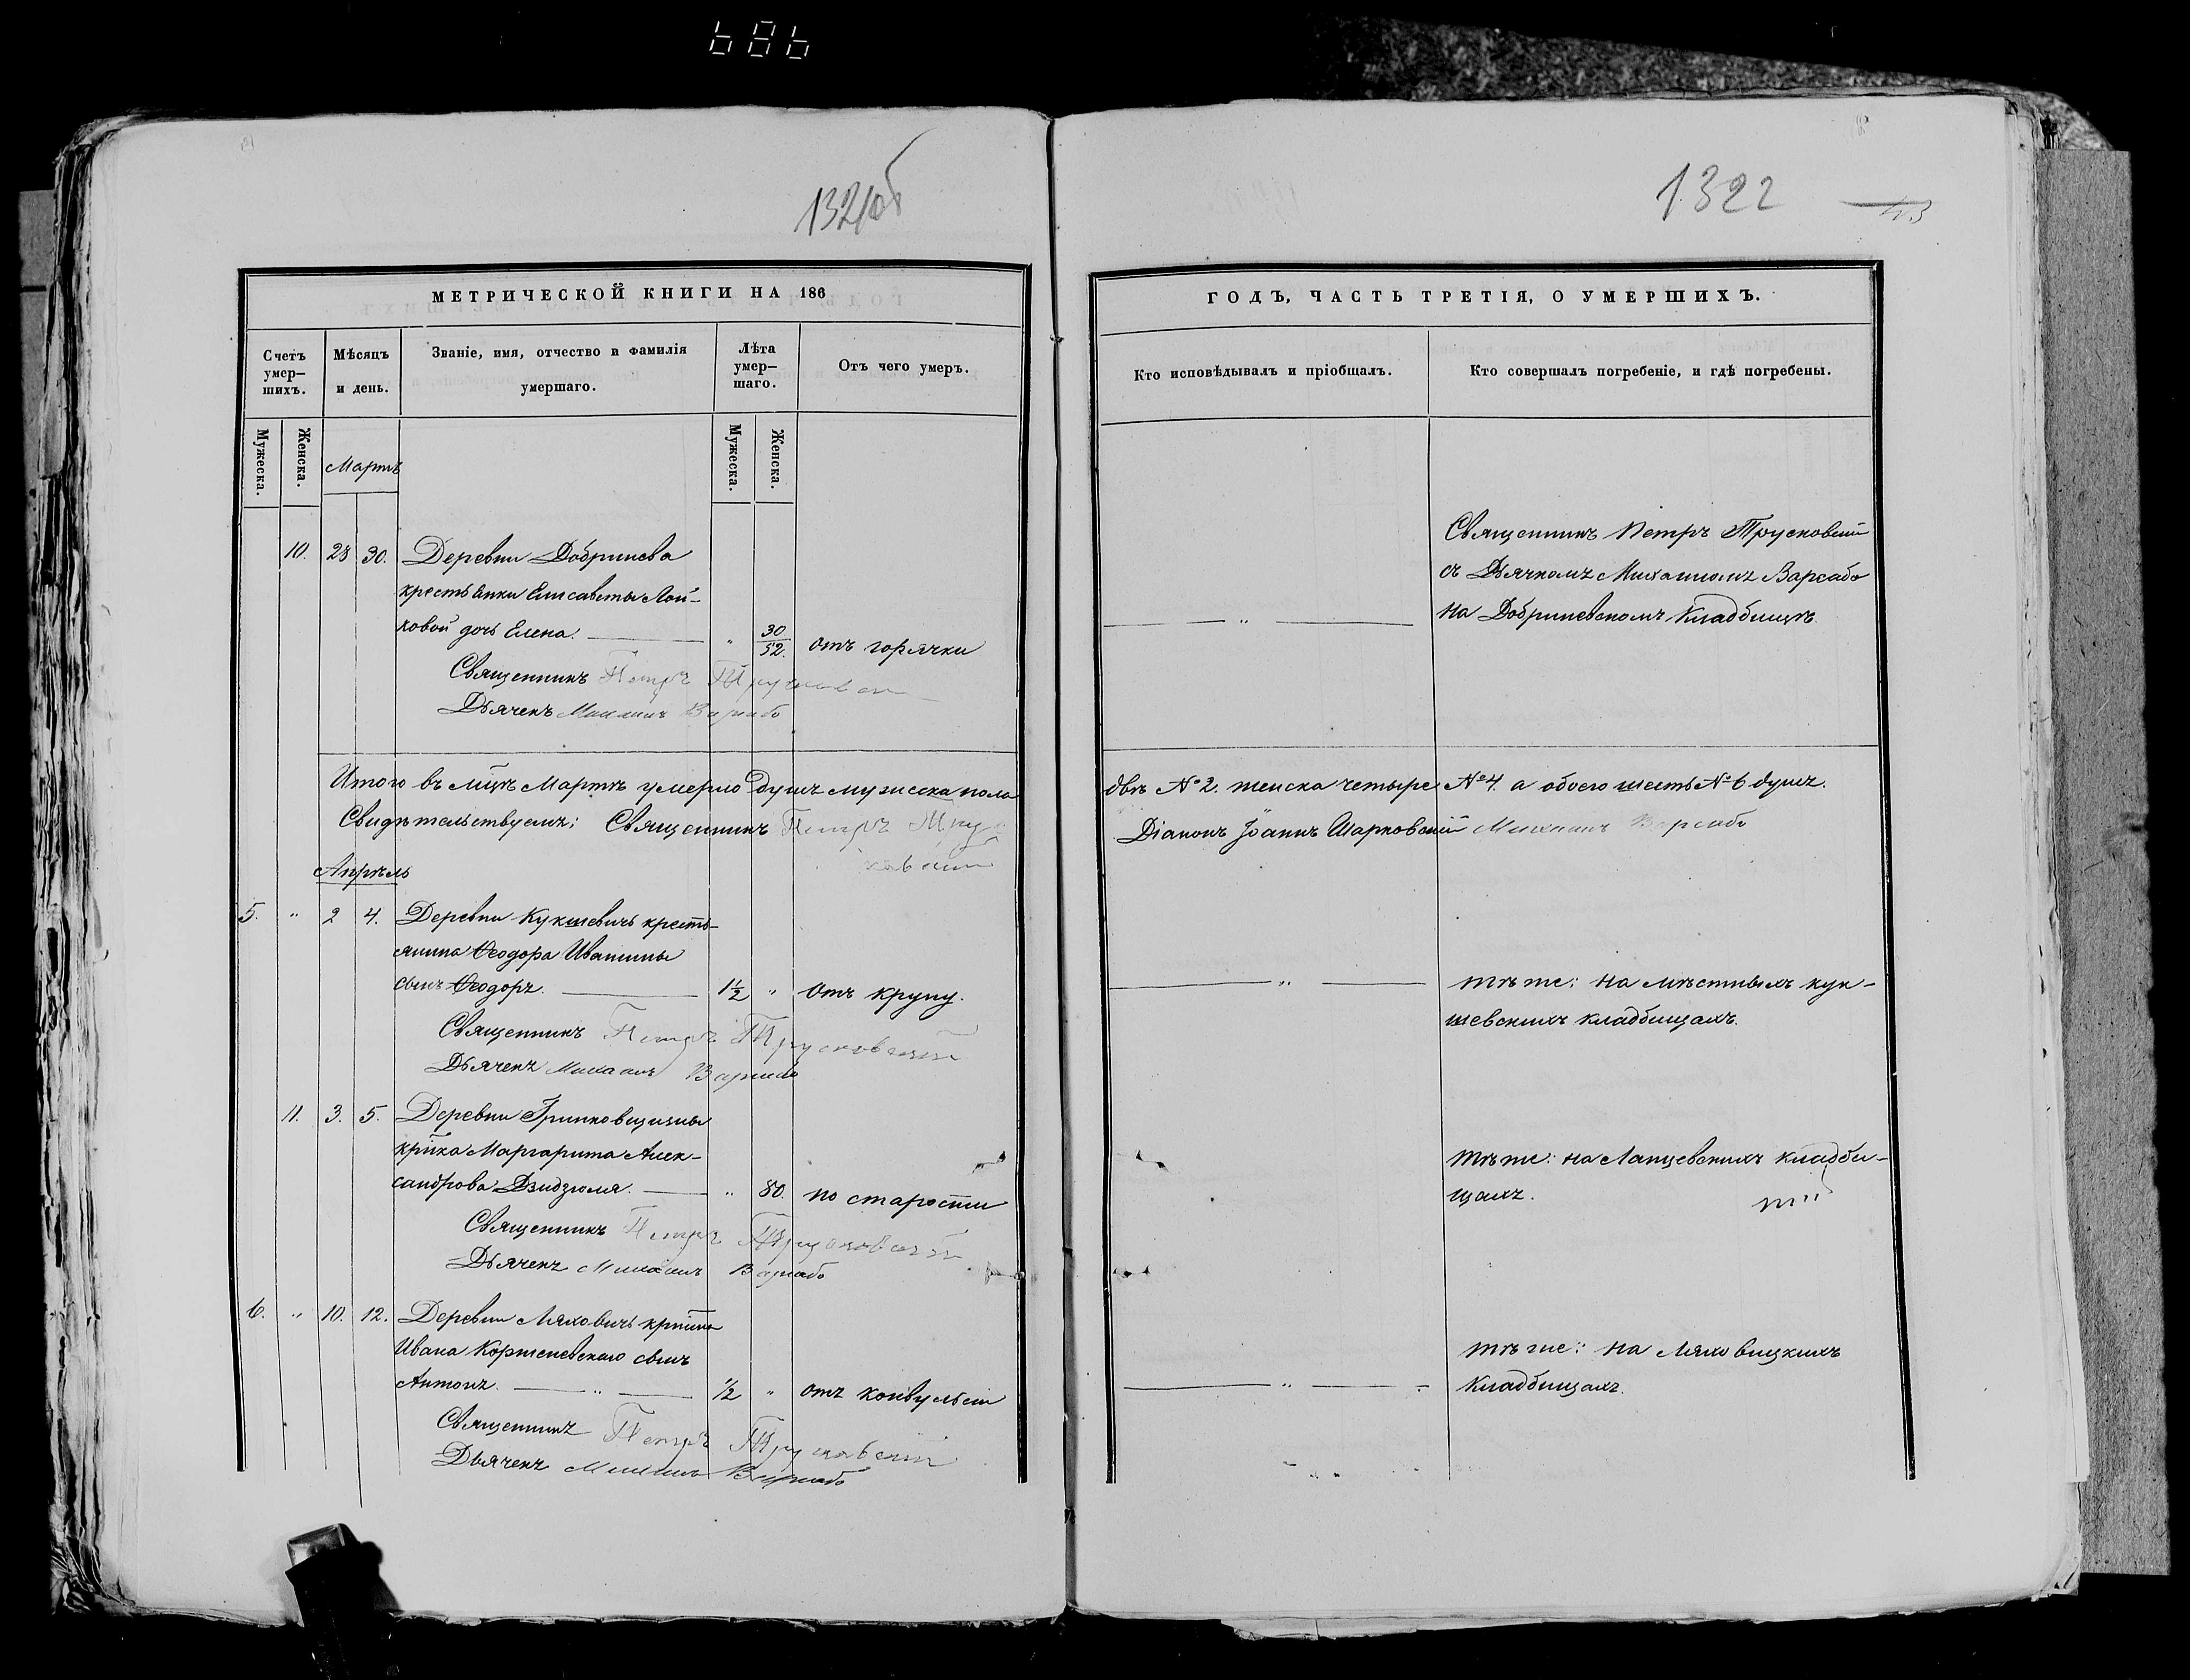 686
1321об
1322
МЕТРИЧЕСКОЙ КНИГИ НА 186
Счетъ умер–шихъ.
Мѣсяцъ и день.
Званіе, имя, отчество и фамилія умершаго.
Лѣта умер–шаго.
Отъ чего умеръ.
Мужеска.
Женска.
Мартъ
Мужеска.
Женска.
10. 28 30. Деревни Добринева
крестьянки Елисаветы Лой-
ковой дочь Елена. " 30/52. отъ горячки
Священникъ Петръ Трусковскій
Дьячекъ Михаилъ Варсабо
Итого въ мцѣ Мартѣ умерло душъ мужеска пола
Свидѣтельствуемъ: Священникъ Петръ Трус
ковскій
Апрѣль
5. " 2 4. Деревни Кукшевичь кресть-
янина Ѳеодора Иванины
сынъ Ѳеодоръ. 1½ " отъ крупу.
Священникъ Петръ Трусковскій
Дьячекъ Михаилъ Варсабо
11. 3. 5. Деревни Гринковщизны
крпка Маргарита Алек-
сандрова Дзидзюля. " 80. по старости
Священникъ Петръ Трусковскій
Дьячекъ Михаилъ Варсабо
6. " 10. 12. Деревни Ляховичь крпина
Ивана Корженевскаго сынъ
Антонъ. " ½ " отъ конвульсіи
Священникъ Петръ Трусковскій
Дьячекъ Михаилъ Варсабо
ГОДЪ, ЧАСТЬ ТРЕТІЯ, О УМЕРШИХЪ.
Кто исповѣдывалъ и пріобщалъ.
Кто совершалъ погребеніе, и гдѣ погребены.
Священникъ Петръ Трусковскій
съ Дьячкомъ Михаиломъ Варсабо
на Добриневскомъ Кладбищѣ.
двѣ №2. женска четыре №4. а обоего шесть №6 душъ.
Діаконъ Іоаннъ Шарковскій Михаилъ Варсабо
тѣ же: на мѣстныхъ кук-
шевскихъ кладбищахъ.
тѣ же: на Лапцевскихъ кладби-
щахъ.
тѣ же: на Ляховицкихъ
Кладбищахъ.